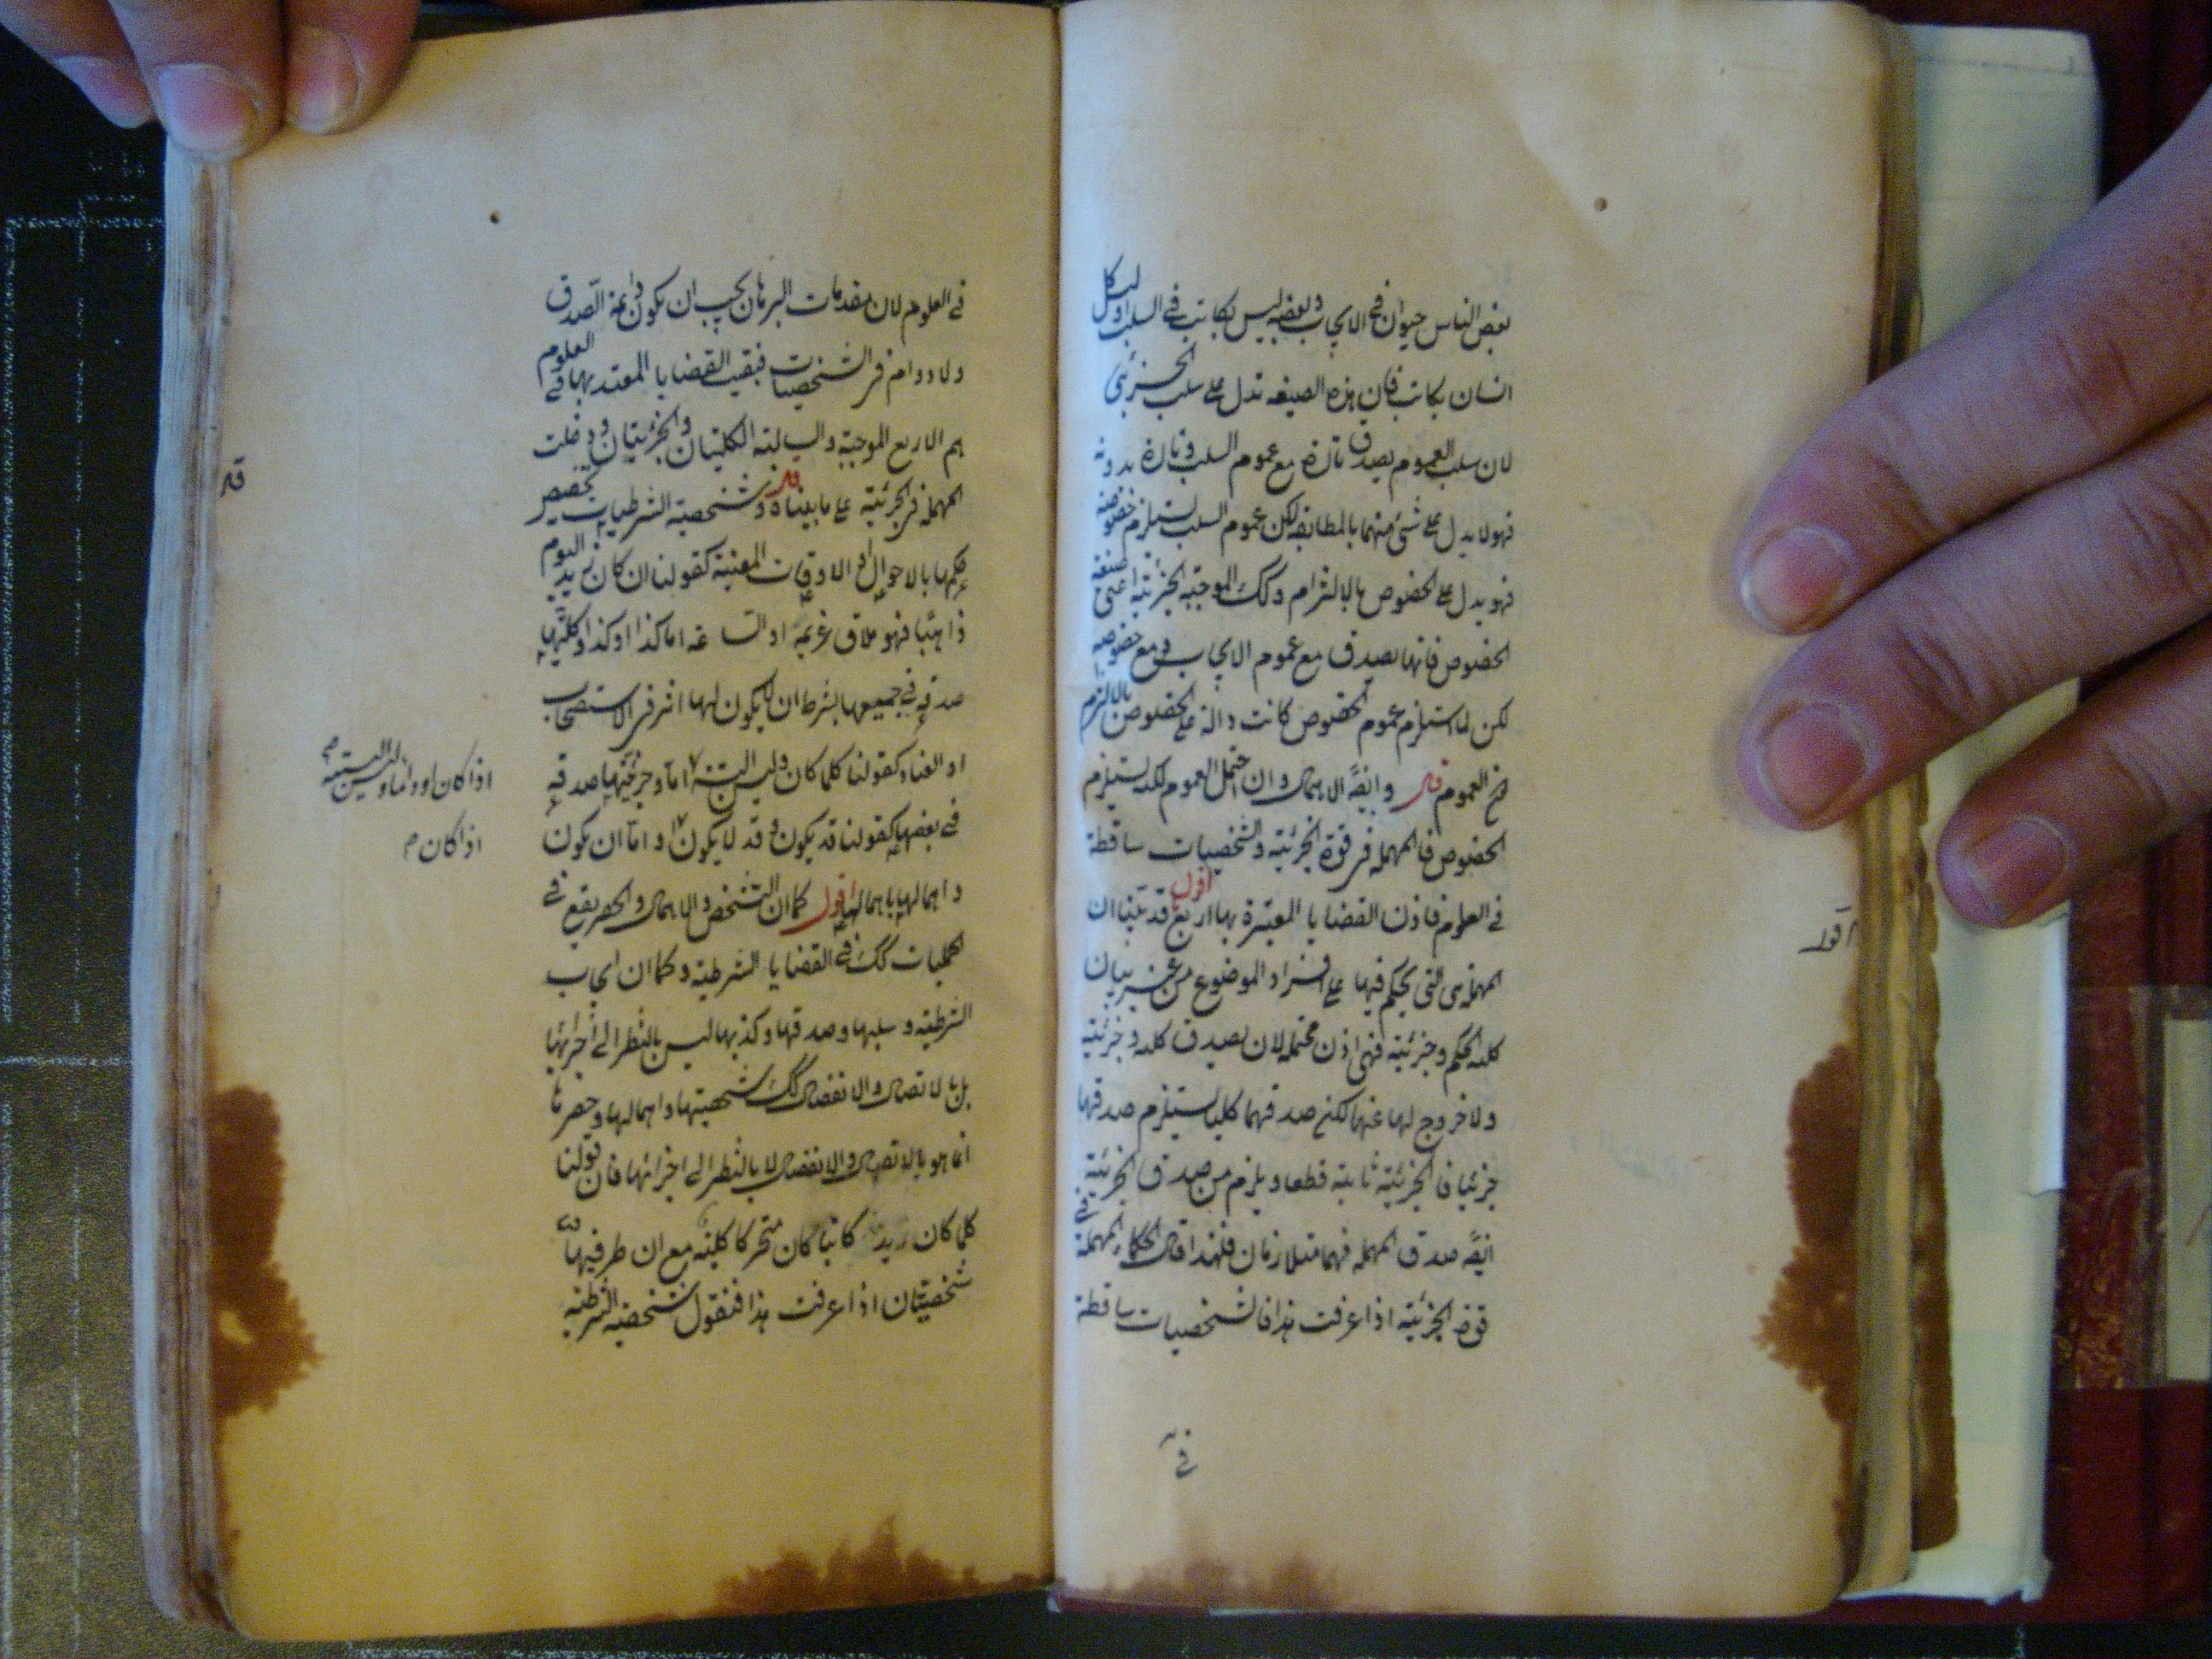 بعض الناس حيوان في الايجاب وبعضه ليس بكاتب في السلب او ليس كل
انسان بكاتب فان هذه الصيغه تدل على سلب الجزئي
لان سلب العموم يصدق تارة مع عموم السلب وتارة بدونه
فهو لا يدل على شئ منهما بالمطابقه لكن عموم السلب يستلزم خصوصه
فهو يدل على الخصوص بالالتزام وكذلك الموجبة الجزئية اعنى صيغة
الخصوص فانها يصدق مع عموم الايجاب ومع خصوصه
لكن لما استلزم عموم الخصوص كانت دالة على الخصوص بالالتزام
العموم قال وايضا الاهمال وان احتمل العموم لكنه يستلزم
الخصوص فالمهمله في قوة الجزئية والشخصيات ساقطة
في العلوم فاذن القضايا المعتبرة بها اربع اقول قد بينا ان
المهمله هى التى يحكم فيها على افراد الموضوع من غير بيان
كلية الحكم وجزئيته فهى اذن محتمله لان يصدق كليه وجزئية
ولا خروج لها عنهما لكن صدقهما كليا يستلزم صدقهما
جزئيا فالجزئية ثابتة قطعا ويلزم من صدق الجزئية
ايضا صدق المهمله فهما متلازمان فلهذا قال الحكماء المهملة في
قوة الجزئية اذا عرفت هذا فالشخصيات ساقطة
في
اقول
في العلوم لان مقدمات البرهان يجب ان يكون دائمة الصدق
ولا دوام في الشخصيات فبقيت القضايا المعتد بها في العلوم
هم الاربع الموجبة والسالبة الكليتان والجزئيتان ودخلت
المهمله في الجزئية على ما بيناه قال وشخصية الشرطيات تخصص
حكمها بالاحوال او الاوقات المعينة كقولنا ان كان زيد اليوم
ذاهبا فهو ملاق غريمه او الساعة اما كذا او كذا وكليتها
صدقه في جميعها بشرط ان لا يكون لها اثر في الاستصحاب
او العناد كقولنا كلما كان وليس البتة اما وجزئيتها صدقه
في بعضها كقولنا قد يكون وقد لا يكون واما ان يكون
واهمالها باهمالها اقول كما ان التشخص والاهمال والحصر يقع في
الحمليات كذلك في القضايا الشرطية وكما ان ايجاب
الشرطية وسلبها وصدقها وكذبها ليس بالنظر الى اجزائها
بل بالاتصال والانفصال كذلك شخصيتها واهمالها وحصرها
انما هو بالاتصال والانفصال لا بالنظر الى اجزائها فان قولنا
كلما كان زيد كاتبا كان متحركا كلية مع ان طرفيها
شخصيتان اذا عرفت هذا فنقول شخصية الشرطية
قال
اذا كان او دائما وليس البتة
اذا كان